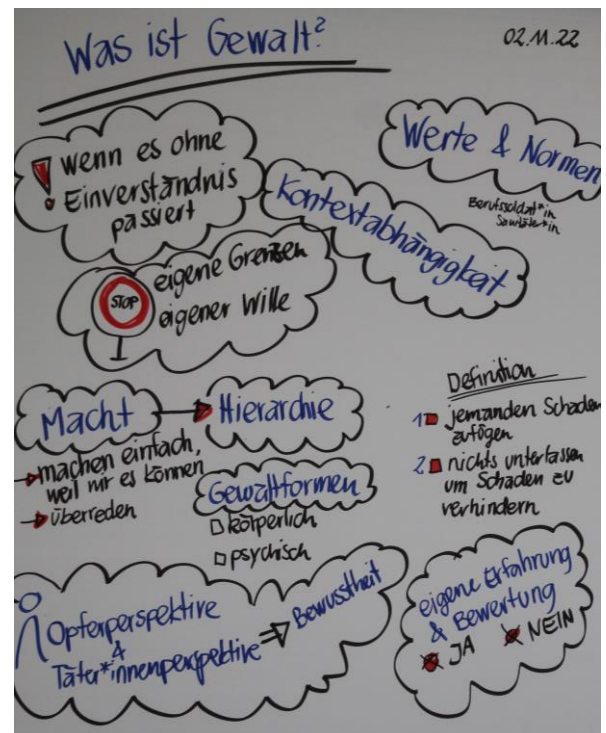 Was ist Gewalt?
02.11.22
! wenn es ohne
Einverständnis
passiert
Werte & Normen
Berufssoldat*in
Sanitäter*in
Kontextabhängigkeit
STOP
eigene Grenzen
eigener Wille
Macht → Hierarchie
→ machen einfach,
weil wir es können
→ überreden
Gewaltformen
körperlich
psychisch
Definition
1 jemanden Schaden
zufügen
2. nichts unterlassen
um Schaden zu
verhindern
Opferperspektive
&
Täter*innenperspektive ⇒ Bewusstheit
eigene Erfahrung
& Bewertung
JA NEIN